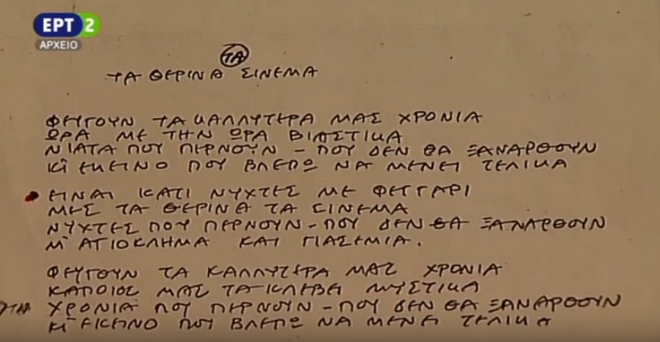 ΕΡΤ2
ΑΡΧΕΙΟ
ΤΑ
ΤΑ ΘΕΡΙΝΑ ΣΙΝΕΜΑ
ΦΕΥΓΟΥΝ ΤΑ ΚΑΛΛΥΤΕΡΑ ΜΑΣ ΧΡΟΝΙΑ
ΩΡΑ ΜΕ ΤΗΝ ΩΡΑ ΒΙΑΣΤΙΚΑ
ΝΙΑΤΑ ΠΟΥ ΠΕΡΝΟΥΝ - ΠΟΥ ΔΕΝ ΘΑ ΞΑΝΑΡΘΟΥΝ
ΚΙ ΕΚΕΙΝΟ ΠΟΥ ΒΛΕΠΩ ΝΑ ΜΕΝΕΙ ΤΕΛΙΚΑ
ΕΙΝΑΙ ΚΑΤΙ ΝΥΧΤΕΣ ΜΕ ΦΕΓΓΑΡΙ
ΜΕΣ ΤΑ ΘΕΡΙΝΑ ΤΑ ΣΙΝΕΜΑ
ΝΥΧΤΕΣ ΠΟΥ ΠΕΡΝΟΥΝ - ΠΟΥ ΔΕΝ ΘΑ ΞΑΝΑΡΘΟΥΝ
Μ' ΑΓΙΟΚΛΗΜΑ ΚΑΙ ΓΙΑΣΕΜΙΑ.
ΦΕΥΓΟΥΝ ΤΑ ΚΑΛΛΥΤΕΡΑ ΜΑΣ ΧΡΟΝΙΑ
ΚΑΠΟΙΟΣ ΜΑΣ ΤΑ ΚΛΕΒΕΙ ΜΥΣΤΙΚΑ
ΧΡΟΝΙΑ ΠΟΥ ΠΕΡΝΟΥΝ - ΠΟΥ ΔΕΝ ΘΑ ΞΑΝΑΡΘΟΥΝ
ΚΙ ΕΚΕΙΝΟ ΠΟΥ ΒΛΕΠΩ ΝΑ ΜΕΝΕΙ ΤΕΛΙΚΑ